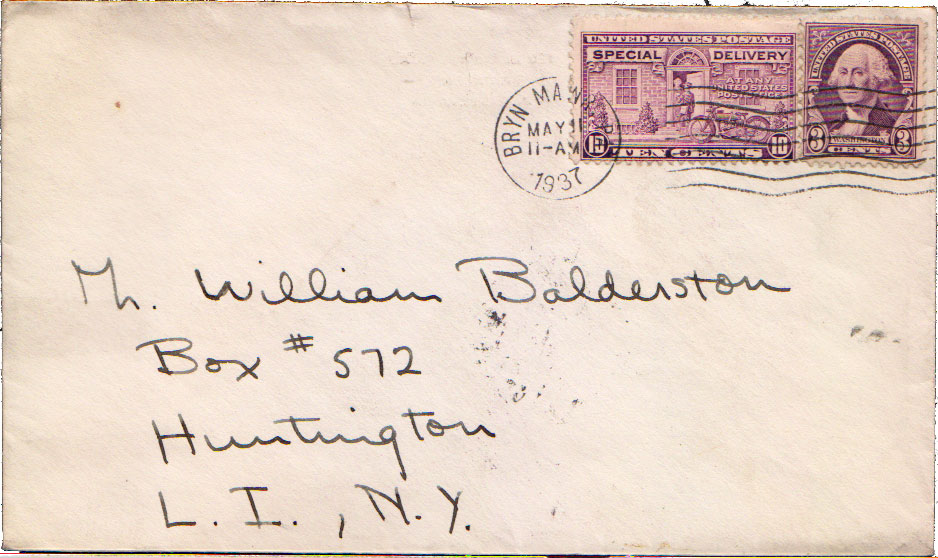 UNITED STATES POSTAGE
SPECIAL DELIVERY
AT ANY
UNITED STATES
POST OFFICE
10 TEN CENTS 10
UNITED STATES POSTAGE
WASHINGTON
3 CENTS 3
BRYN MAWR
MAY
11-AM
1937
Mr. William Balderston
Box # 572
Huntington
L. I., N.Y.